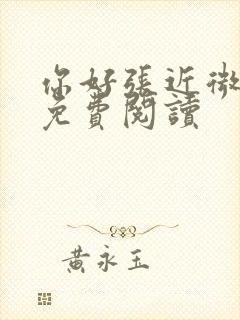 你好張近微
免費閱讀
黃永玉